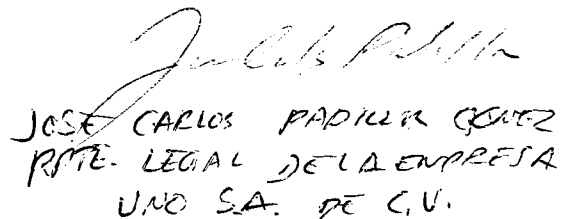 JOSE CARLOS PADILLA GOMEZ
RPTE. LEGAL DE LA EMPRESA
UNO S.A. DE C.V.